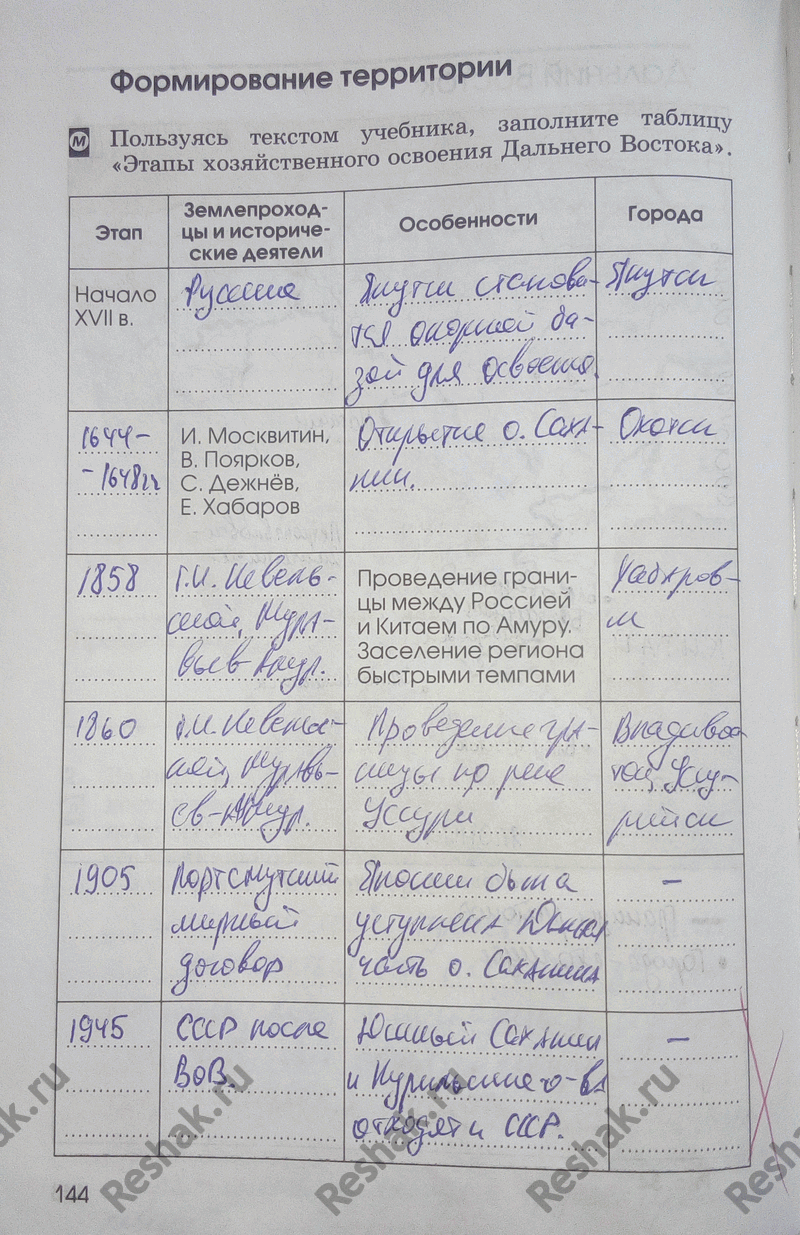 Формирование территории
М Пользуясь текстом учебника, заполните таблицу
«Этапы хозяйственного освоения Дальнего Востока».
Этап
Землепроход-
цы и историче-
ские деятели
Особенности
Города
Начало
XVII в.
Русские
Якутск станови-
тся опорной ба-
зой для освоения.
Якутск
1644–
–1648гг
И. Москвитин,
В. Поярков,
С. Дежнёв,
Е. Хабаров
Открытие о. Саха-
лин.
Охотск
1858
Г.И. Невель-
ской, Мура-
вьев Амур.
Проведение грани-
цы между Россией
и Китаем по Амуру.
Заселение региона
быстрыми темпами
Хабаров-
к
1860
Г.И. Невельс-
кой, Муравь-
ев-Амур.
Проведение гра-
ницы по реке
Уссури
Владивос-
ток, Уссу-
рийск
1905
Портсмутский
мирный
договор
Японии была
уступлена Южная
часть о. Сахалина
–
1945
СССР после
ВОВ.
Южный Сахалин
и Курильские о-ва
отходят к СССР.
–
144
Reshak.ru
Reshak.ru
Reshak.ru
Reshak.ru